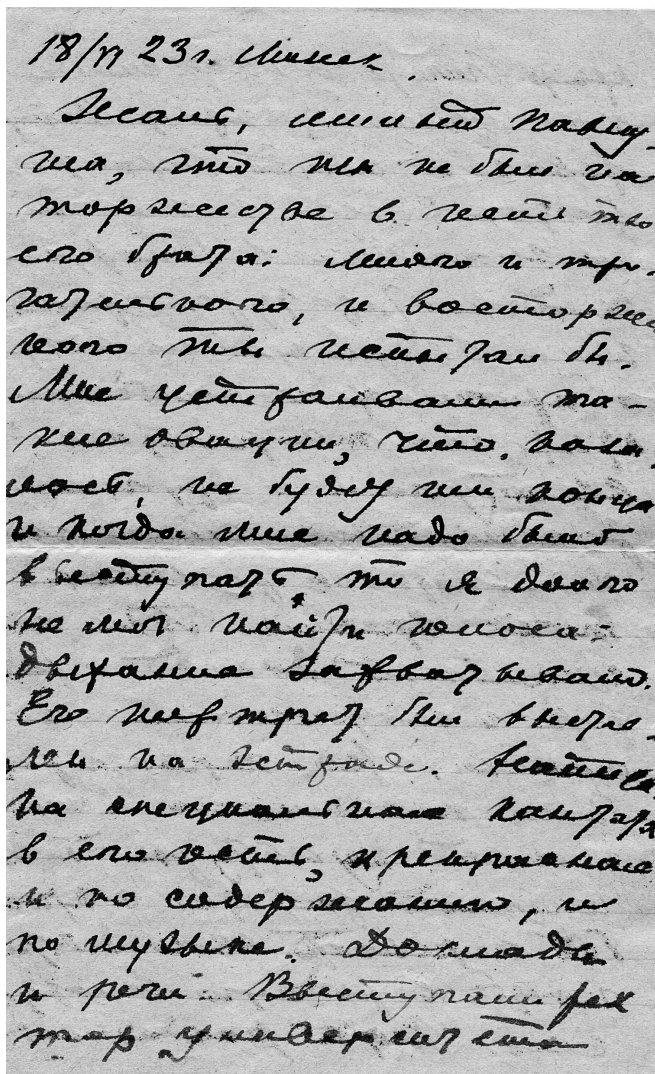 18/VI 23 г. Минск.
Жаль, милый Павлу-
ша, что ты не был на
торжестве в честь тво
его брата: много и тро-
гательного, и восторжен
ного ты испытал бы.
Мне устраивали та-
кие овации, что, каза
лось, не будет им конца
и когда мне надо было
выступать, то я долго
не мог найти голоса:
дыхание захватывало.
Его портрет был выстав
лен на эстраде. Написа
на специальная кантата
в его честь, прекрасная
и по содержанию, и
по музыке. Доклады
и речи. Выступали рек
тор университета